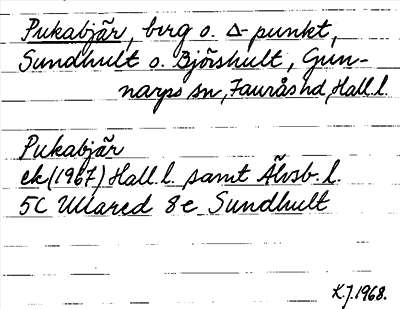 Pukabjär, berg o. ∆-punkt,
Sundhult o. Björshult, Gun-
narps sn, Faurås hd, Hall.l.
Pukabjär
ek(1967) Hall.l. samt Älvsb.l.
5C Ullared 8e Sundhult
K.J.1968.